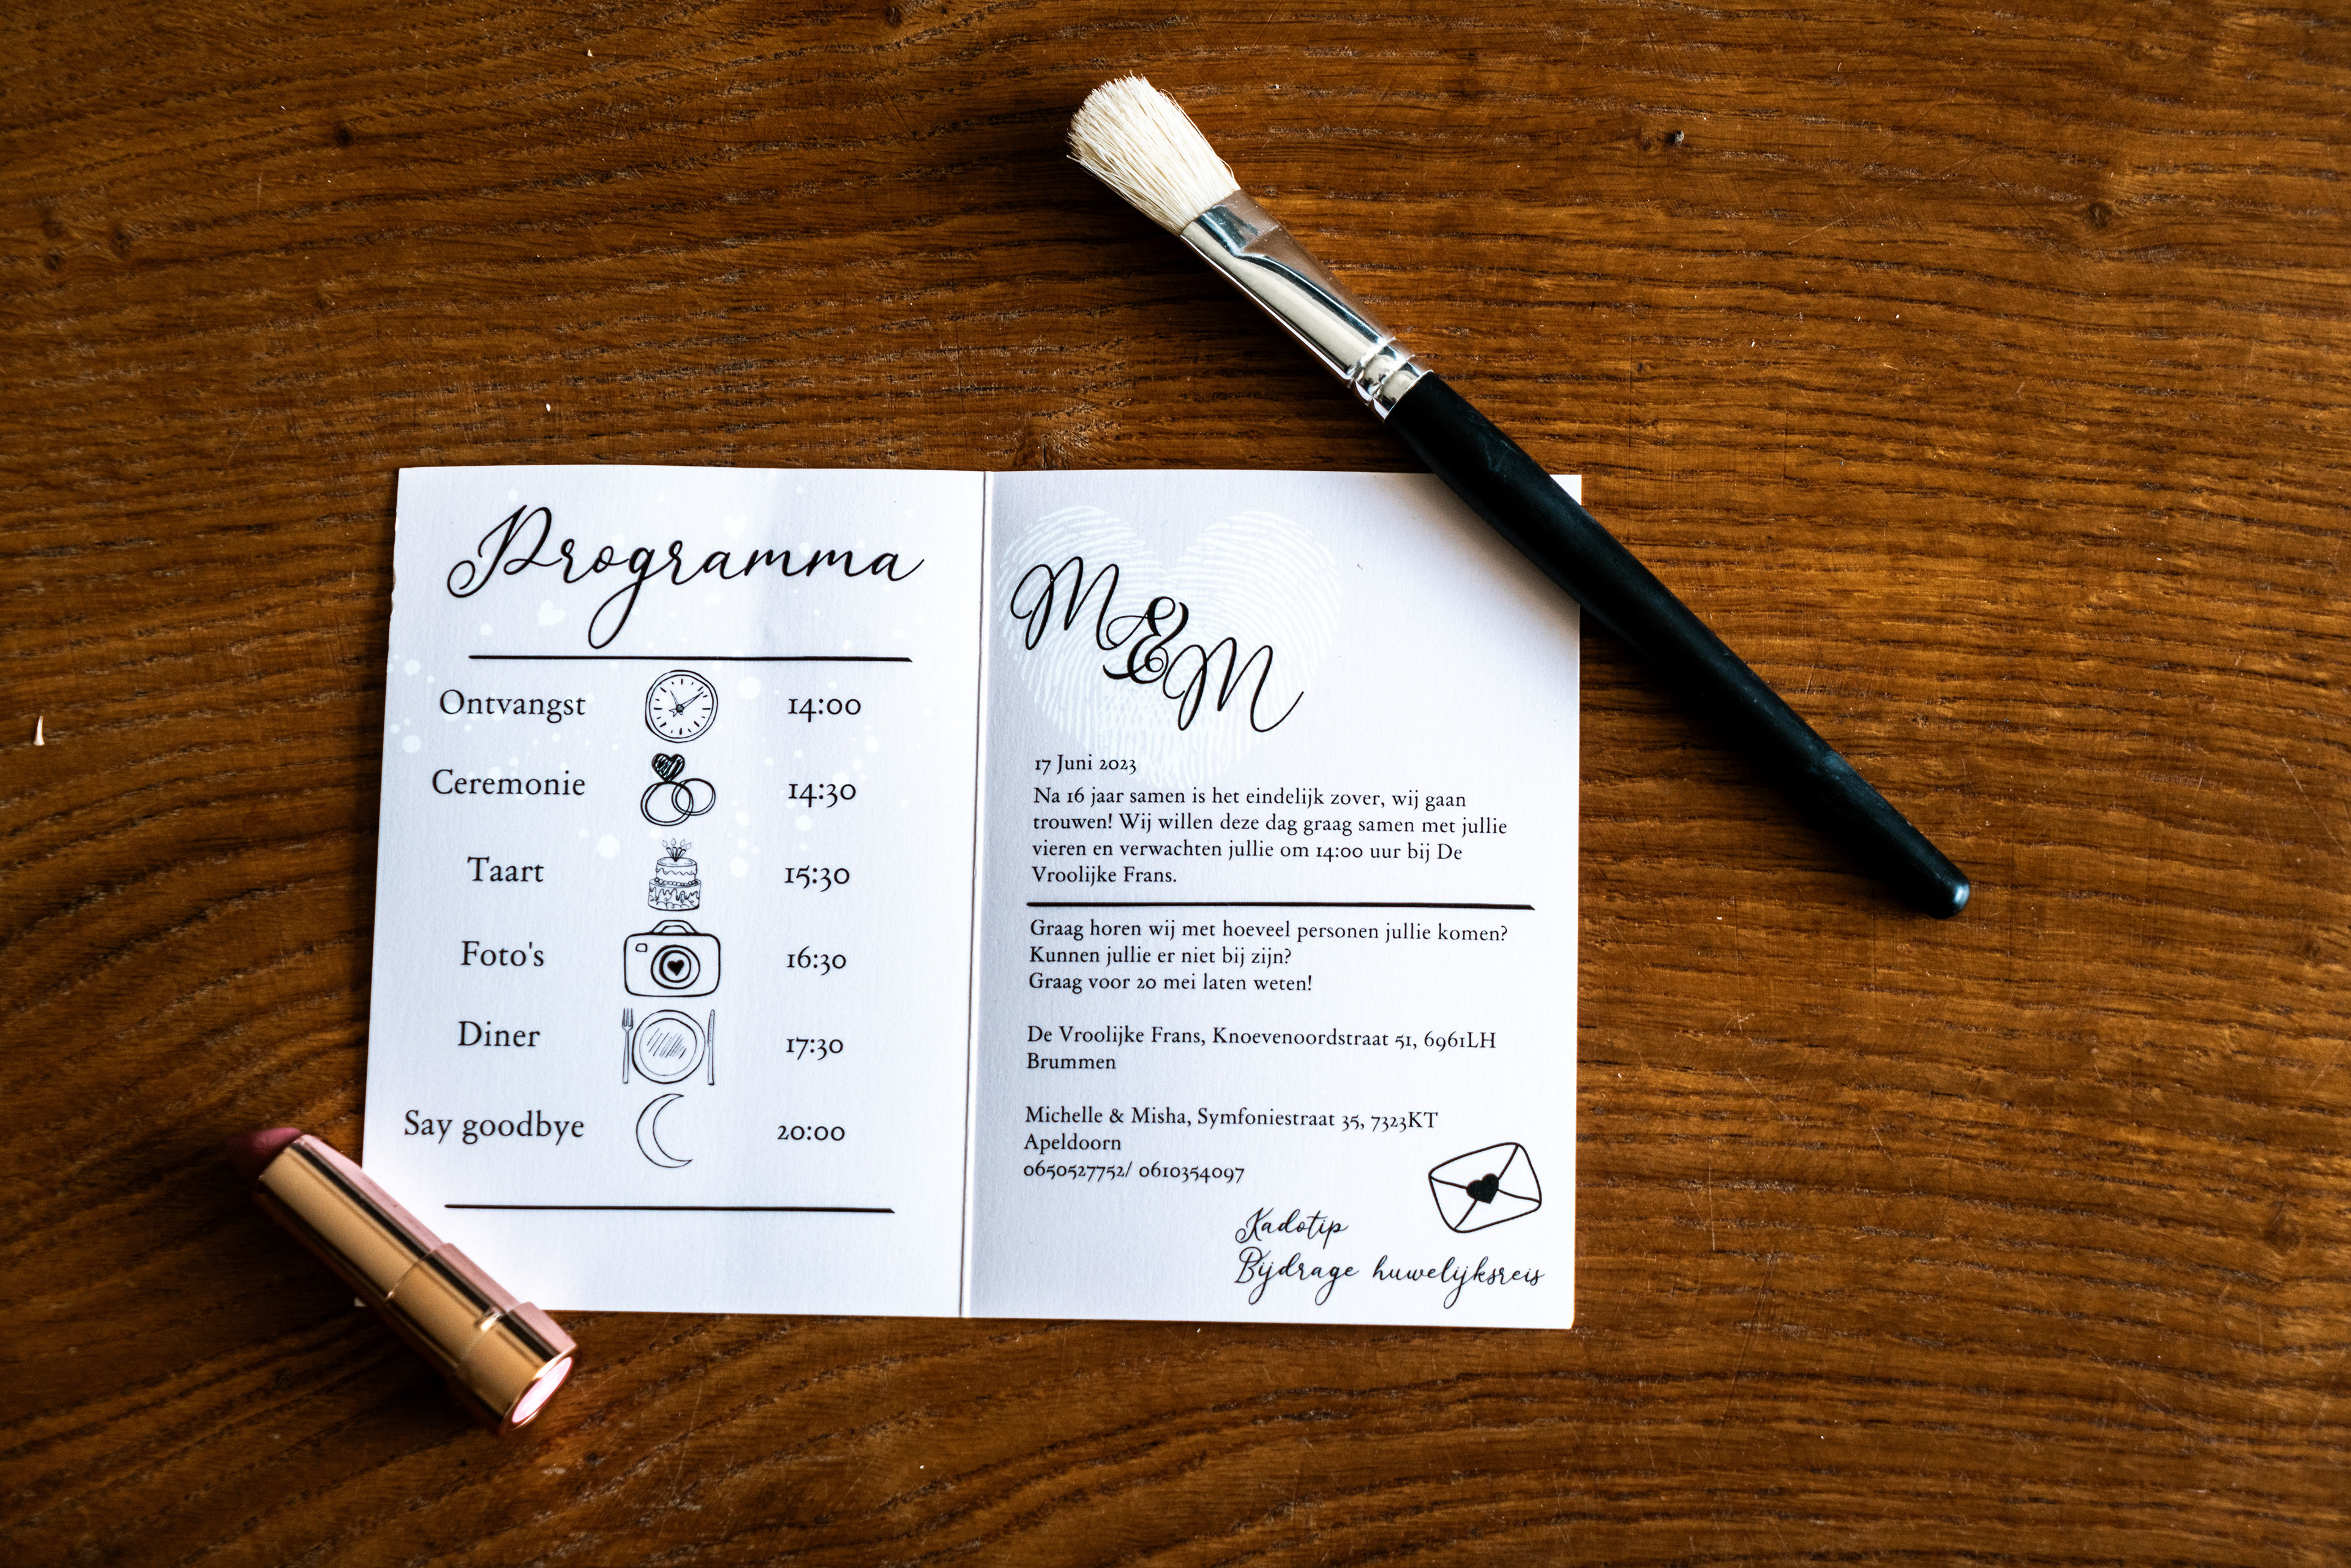 Programma
Ontvangst 14:00
Ceremonie 14:30
Taart 15:30
Foto's 16:30
Diner 17:30
Say goodbye 20:00
M&M
17 Juni 2023
Na 16 jaar samen is het eindelijk zover, wij gaan
trouwen! Wij willen deze dag graag samen met jullie
vieren en verwachten jullie om 14:00 uur bij De
Vroolijke Frans.
Graag horen wij met hoeveel personen jullie komen?
Kunnen jullie er niet bij zijn?
Graag voor 20 mei laten weten!
De Vroolijke Frans, Knoevenoordstraat 51, 6961LH
Brummen
Michelle & Misha, Symfoniestraat 35, 7323KT
Apeldoorn
0650527752/ 0610354097
Kadotip
Bijdrage huwelijksreis